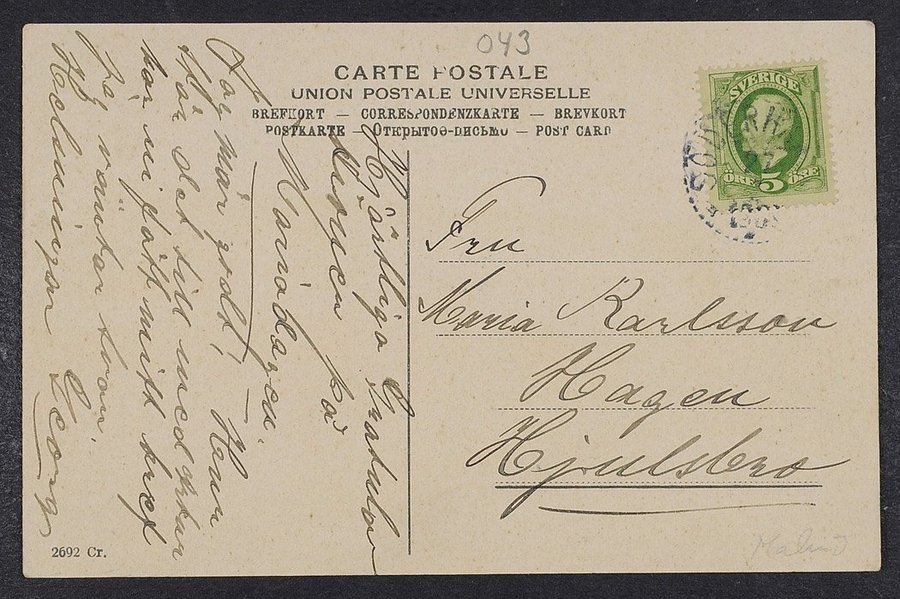 043
CARTE POSTALE
UNION POSTALE UNIVERSELLE
BREFKORT — CORRESPONDENZKARTE — BREVKORT
POSTKARTE — Открытое-письмо — POST CARD
SVERIGE
ÖRE 5 ÖRE
Fru
Maria Karlsson
Hagen
Hjulsbro
Hjärtliga Gratulationer
på
Namnsdagen.
Jag mår godt! Hur
står det till med
har ni fått mitt bref
jag väntar svar.
Helsningar Georg
2692 Cr.